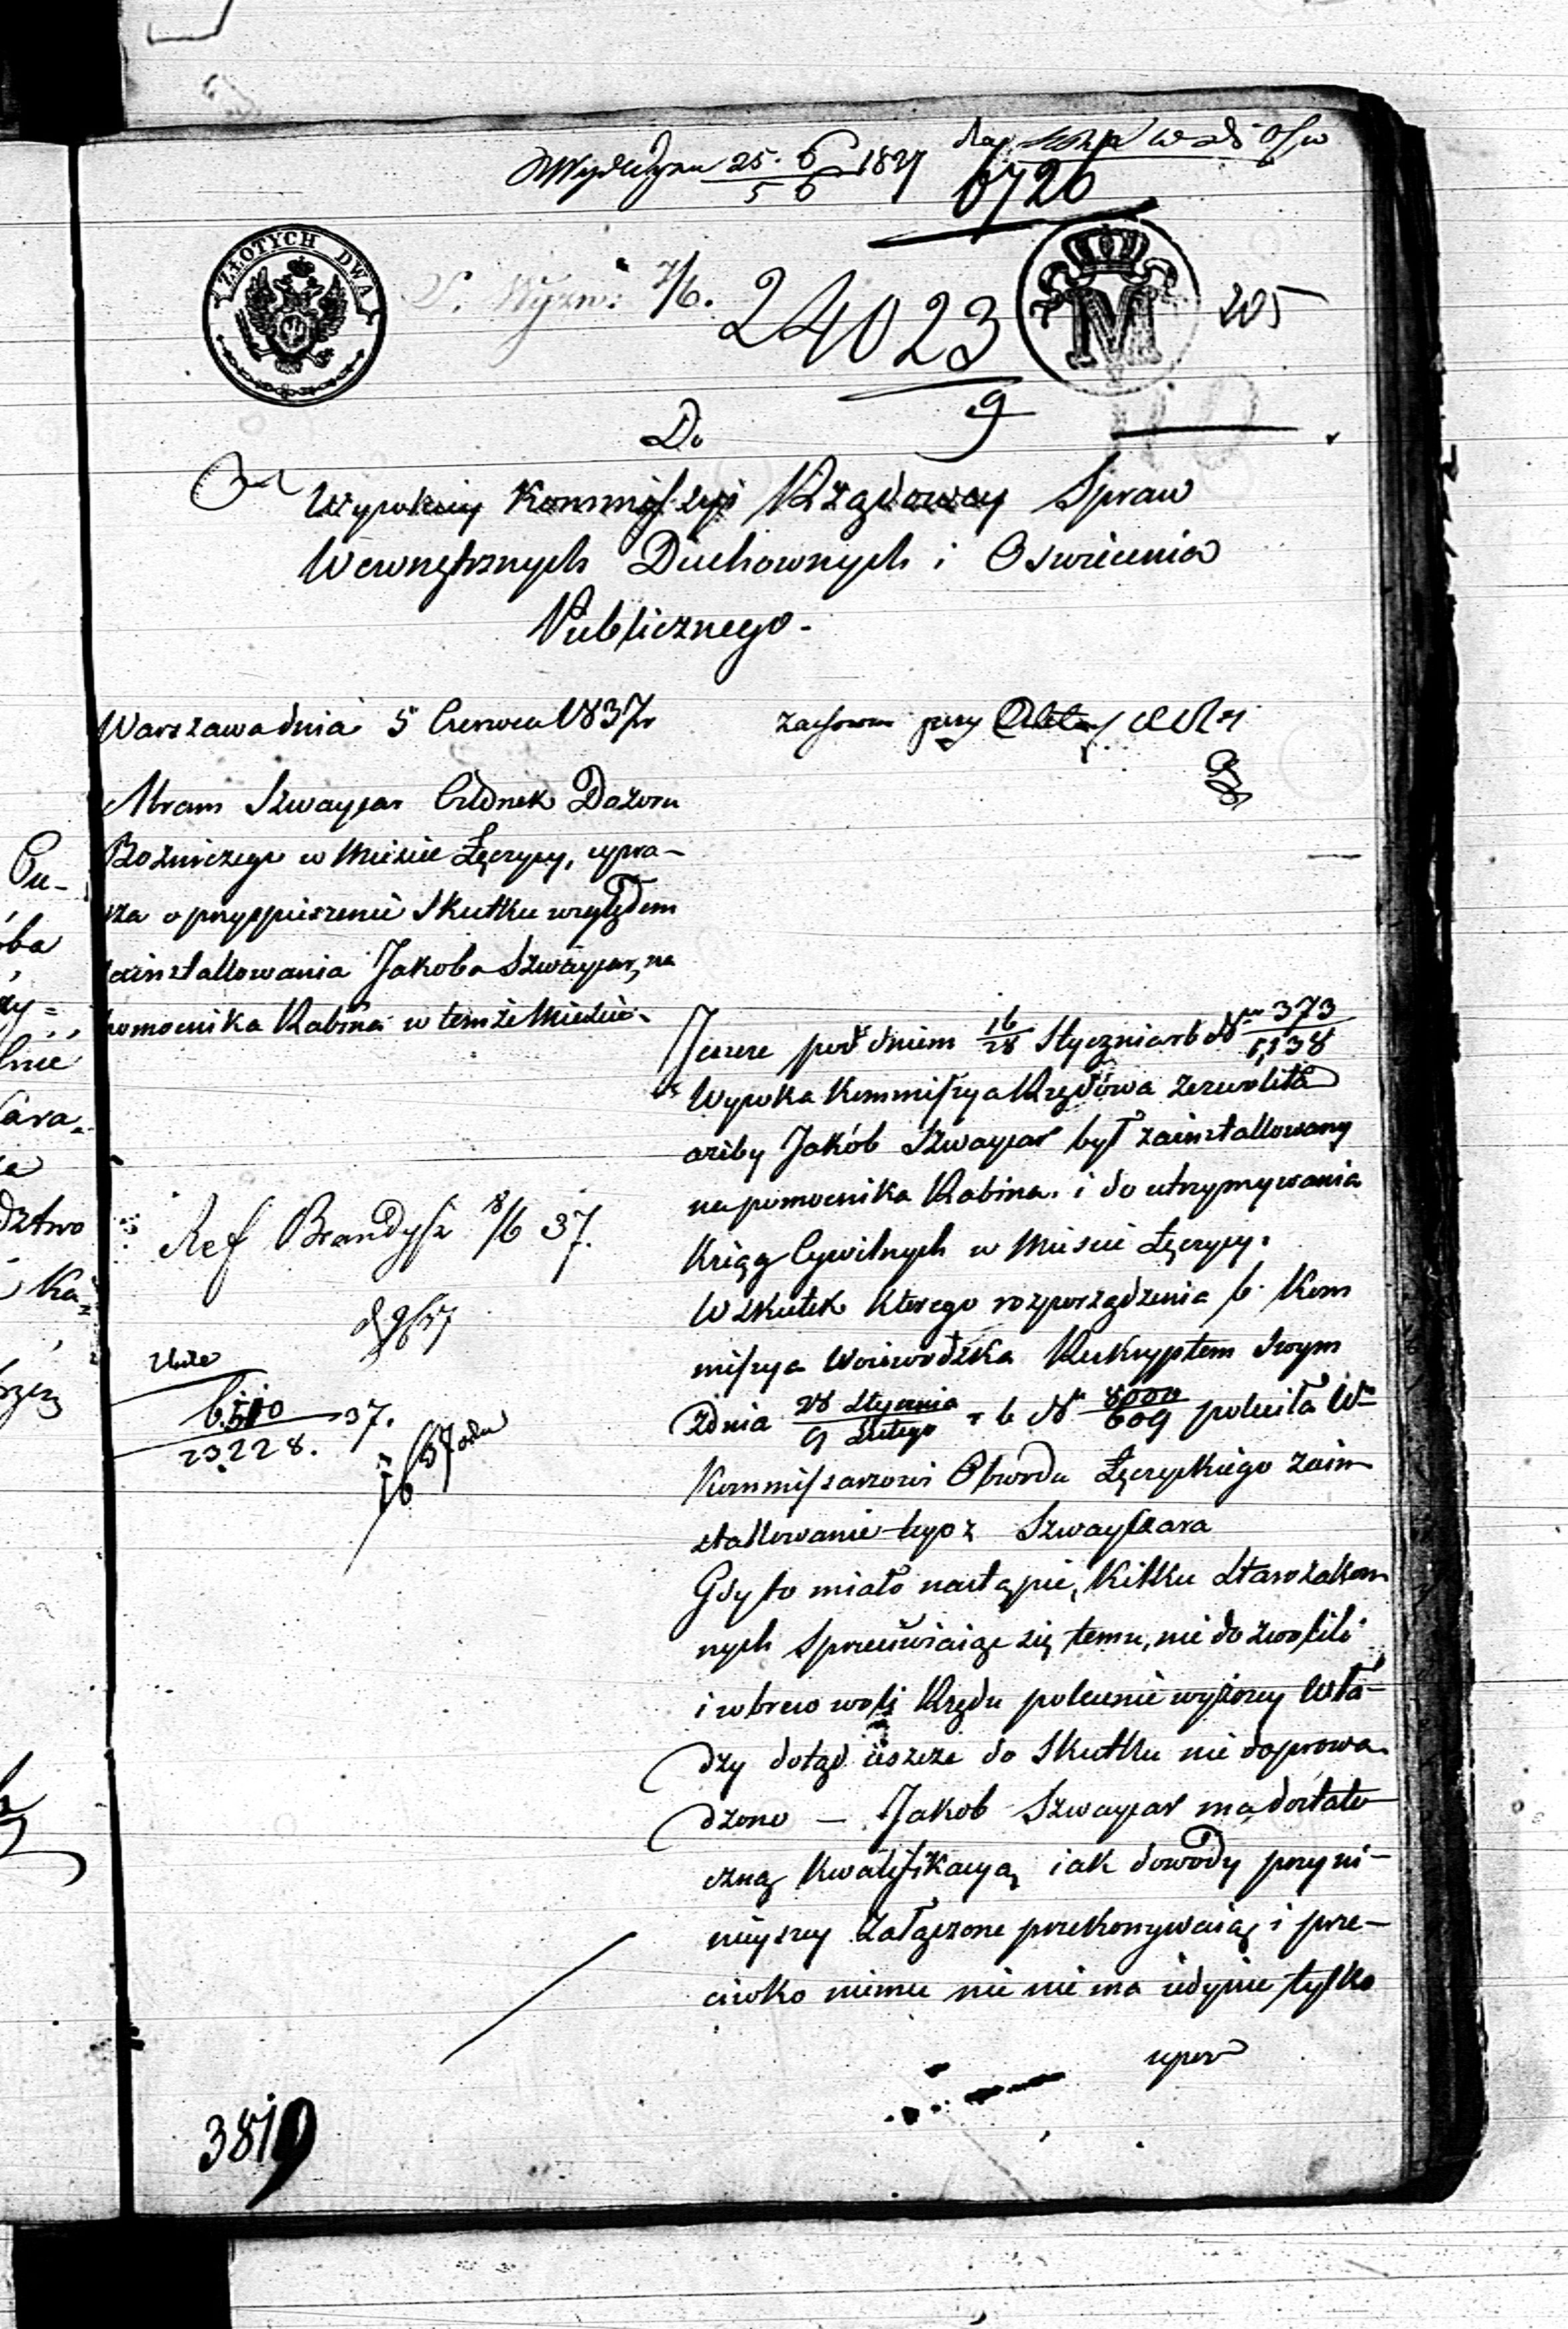 25. 6 1837
5 6
6726
ZŁOTYCH DWA
Wyzn: 7/6.
24023
9
M
205
Do
Wysokiey Kommissyi Rządowey Spraw
Wewnętrznych Duchownych i Oswiecenia
Publicznego.
Warszawa dnia 5 Czerwca 1837r
Abram Szwaycar Członek Dozoru
Bożniczego w Miescie Łęczycy, upra-
sza o przyspieszenie skutku względem
zainstallowania Jakoba Szwaycar, na
pomocnika Rabina w temże Miescie.
przy
Jeszcze pod dniem 16/28 Stycznia r b No 373
1,138
Wysoka Kommissya Rządowa zezwoliła
ażeby Jakób Szwaycar był zainstallowany
na pomocnika Rabina. i do utrzymywania
Xiąg Cywilnych w Miescie Łęczycy.
W skutek ktorego rozporządzenia b. Kom
missya Woiewodzka Reskryptem swym
zdnia 28 Stycznia / 9 Lutego r b No 8000/609 poleciła Wu
Kommissarzowi Obwodu Łęczyckiego zain
stallowanie tegoż Szwaycara
Gdy to miało nastąpic, kilku starozakon
nych sprzeciwiaiąc się temu, nie dozwolili
i wbrew woli Rządu polecenie wyższey Wła-
dzy dotąd ieszcze do skutku nie doprowa
dzono — Jakob Szwaycar ma dostate
czną kwalifikacyą iak dowody przy ni-
nieyszey załączone przekonywaią i prze-
ciwko niemu nic nie ma iedynie tylko
upor
Ref Brandysz 8/6 37.
6.510
23.228. 37.
3819